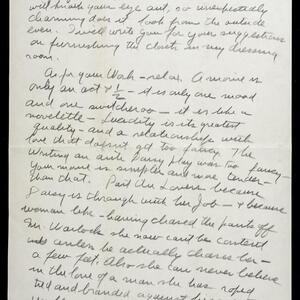 will break your eye out, so unexpectedly
charming does it look from the outside
even. I will write you for your suggestions
on furnishing the closets in my dressing
room.
As for your Work – relax. A movie is
only an act & 1/2 – it is only one mood
and one switcheroo – it is like a
novelette – Lucidity is its greatest
quality – and a relationship with
love that doesn't get too fancy. The
writing an ante Daisy play was too fancy –
your movie is simpler and more tender
than that. Part the Lovers because
Daisy is through with her Job – & because
woman like – having chased the pants off
Mr. Warlock she now can't be content
unless he actually chases her –
a few feet. Also she can never believe
in the love of a man she has roped
tied and branded against